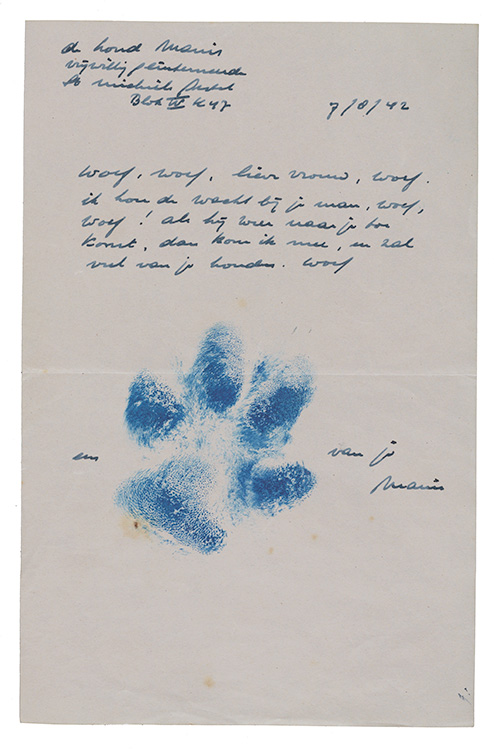 de hond Manis
vrijwillig geïnterneerde
St Michiels Gestel
Blok IV K 47
7/8/42
Woef, woef, lieve vrouw, woef.
ik hou de wacht bij je man, woef,
woef! als hij weer naar je toe
komt, dan kom ik mee, en zal
veel van je houden. Woef
een van je
Manis